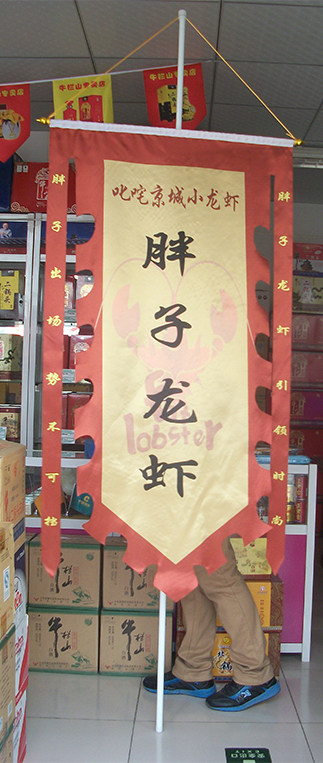 牛栏山专卖店
牛栏山专卖店
叱咤京城小龙虾
胖子龙虾
lobster
胖子出场势不可挡
胖子龙虾引领时尚
二锅头
牛栏山
牛栏山
牛栏山
EXIT